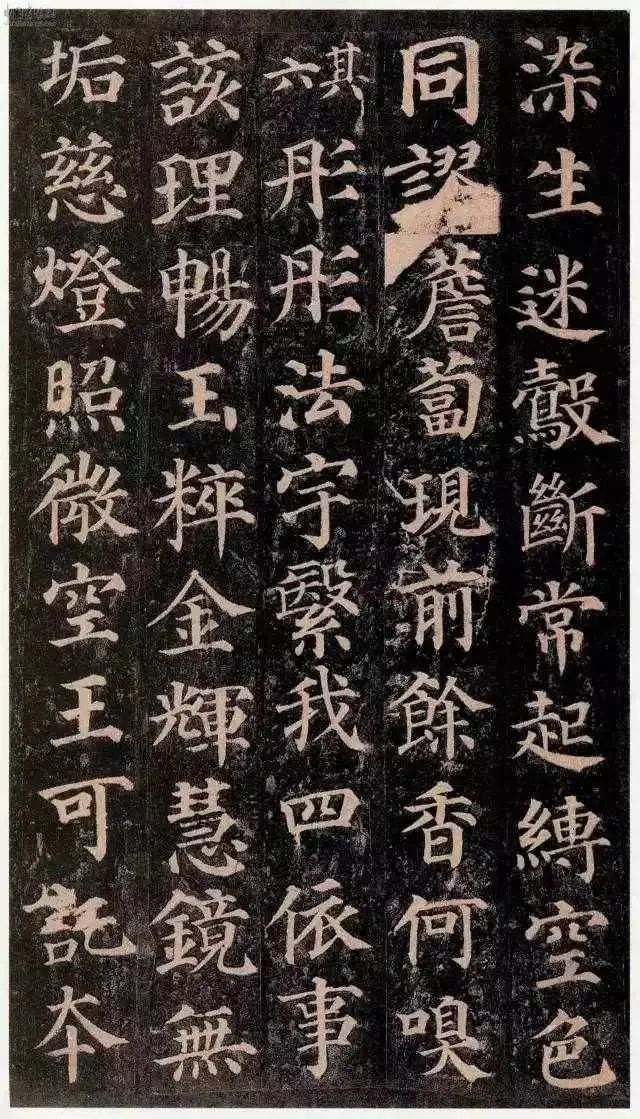 染生迷㲉斷常起縛空色
同謬薝蔔現前餘香何嗅
其六彤彤法宇繄我四依事
該理暢玉粹金輝慧鏡無
垢慈燈照微空王可託本